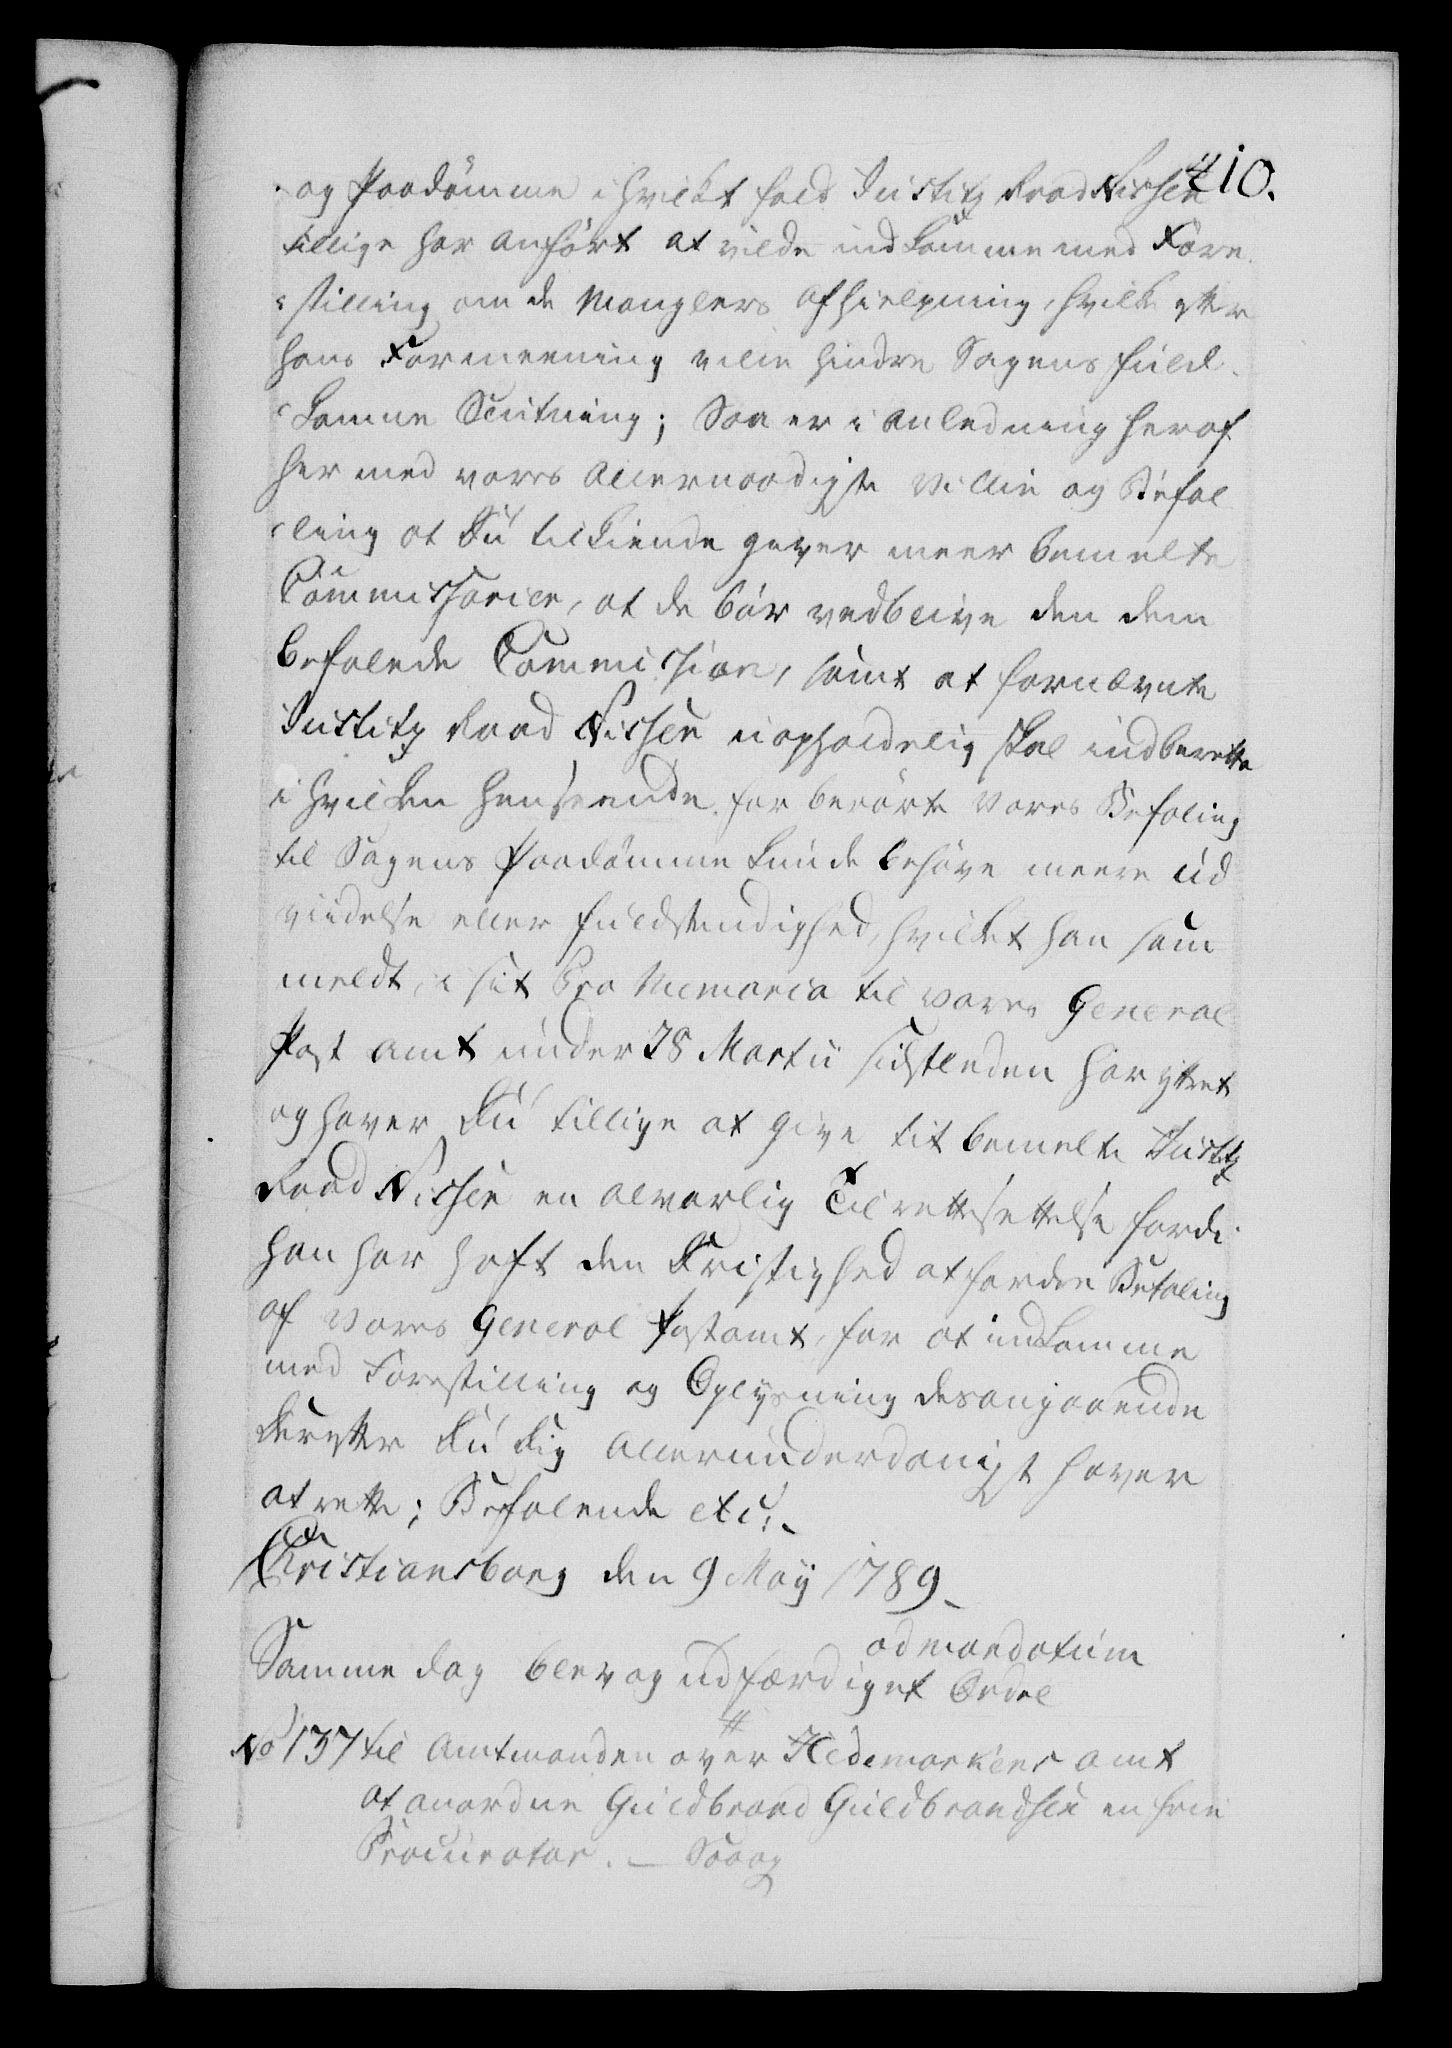 410.
og Paadömme i hvilket fald Justitz Raad Nissen
tillige har anfört at vilde indkomme med Fore
-stilling om de Manglers afhielpning, hvilke efter
hans Formeening ville hindre Sagens fuld-
komne Slutning; Saa er i anledning heraf
her med vores Allernaadigste Villie og Befal
-ling at Du tilkiende giver meer bemelte
Commissarier, at de bör vedblive den dem
befalede Commission, samt at fornævnte
Justitz Raad Nissen uopholdelig skal indberette
i hvilken henseende forberörte Vores Befaling
til Sagens Paadömme kunde behöve meere ud
viidelse eller fuldstendighed, hvilket han som
meldt, i sit Pro Memoria til vores General
Post Amt under 28 Martii sidstleden har yttret
og haver Du tillige at give tit bemelte Justitz
Raad Nissen en alvorlig Tilrettesettelse fordi
han har haft den Dristighed at fordre Befaling
af Vores General Postamt, for at indkomme
med Forestilling og Oplysning desangaaende
Derefter Du Dig allerunderdanigst haver
at rette; Befalende etc:
Christiansborg den 9 Maÿ 1789
Samme dag blev og udfærdiget Ordel
ad mandatum
No 137 til Amtmanden over Hedemarkens amt
at anordne Guldbrand Guldbrandsen en frie
Procurator. — Saaog